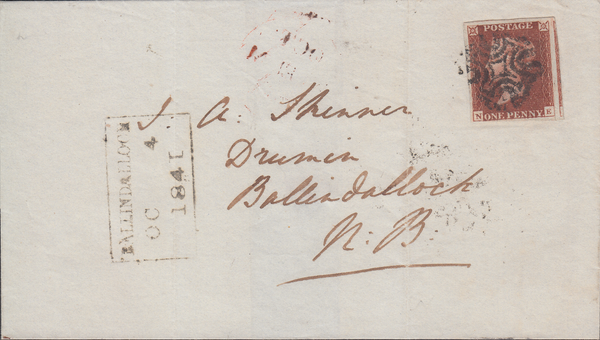 POSTAGE
N ONE PENNY E
J. A. Skinner
Drumin
Ballindalloch
N. B.
BALLINDALLOCH
OC 4
1841